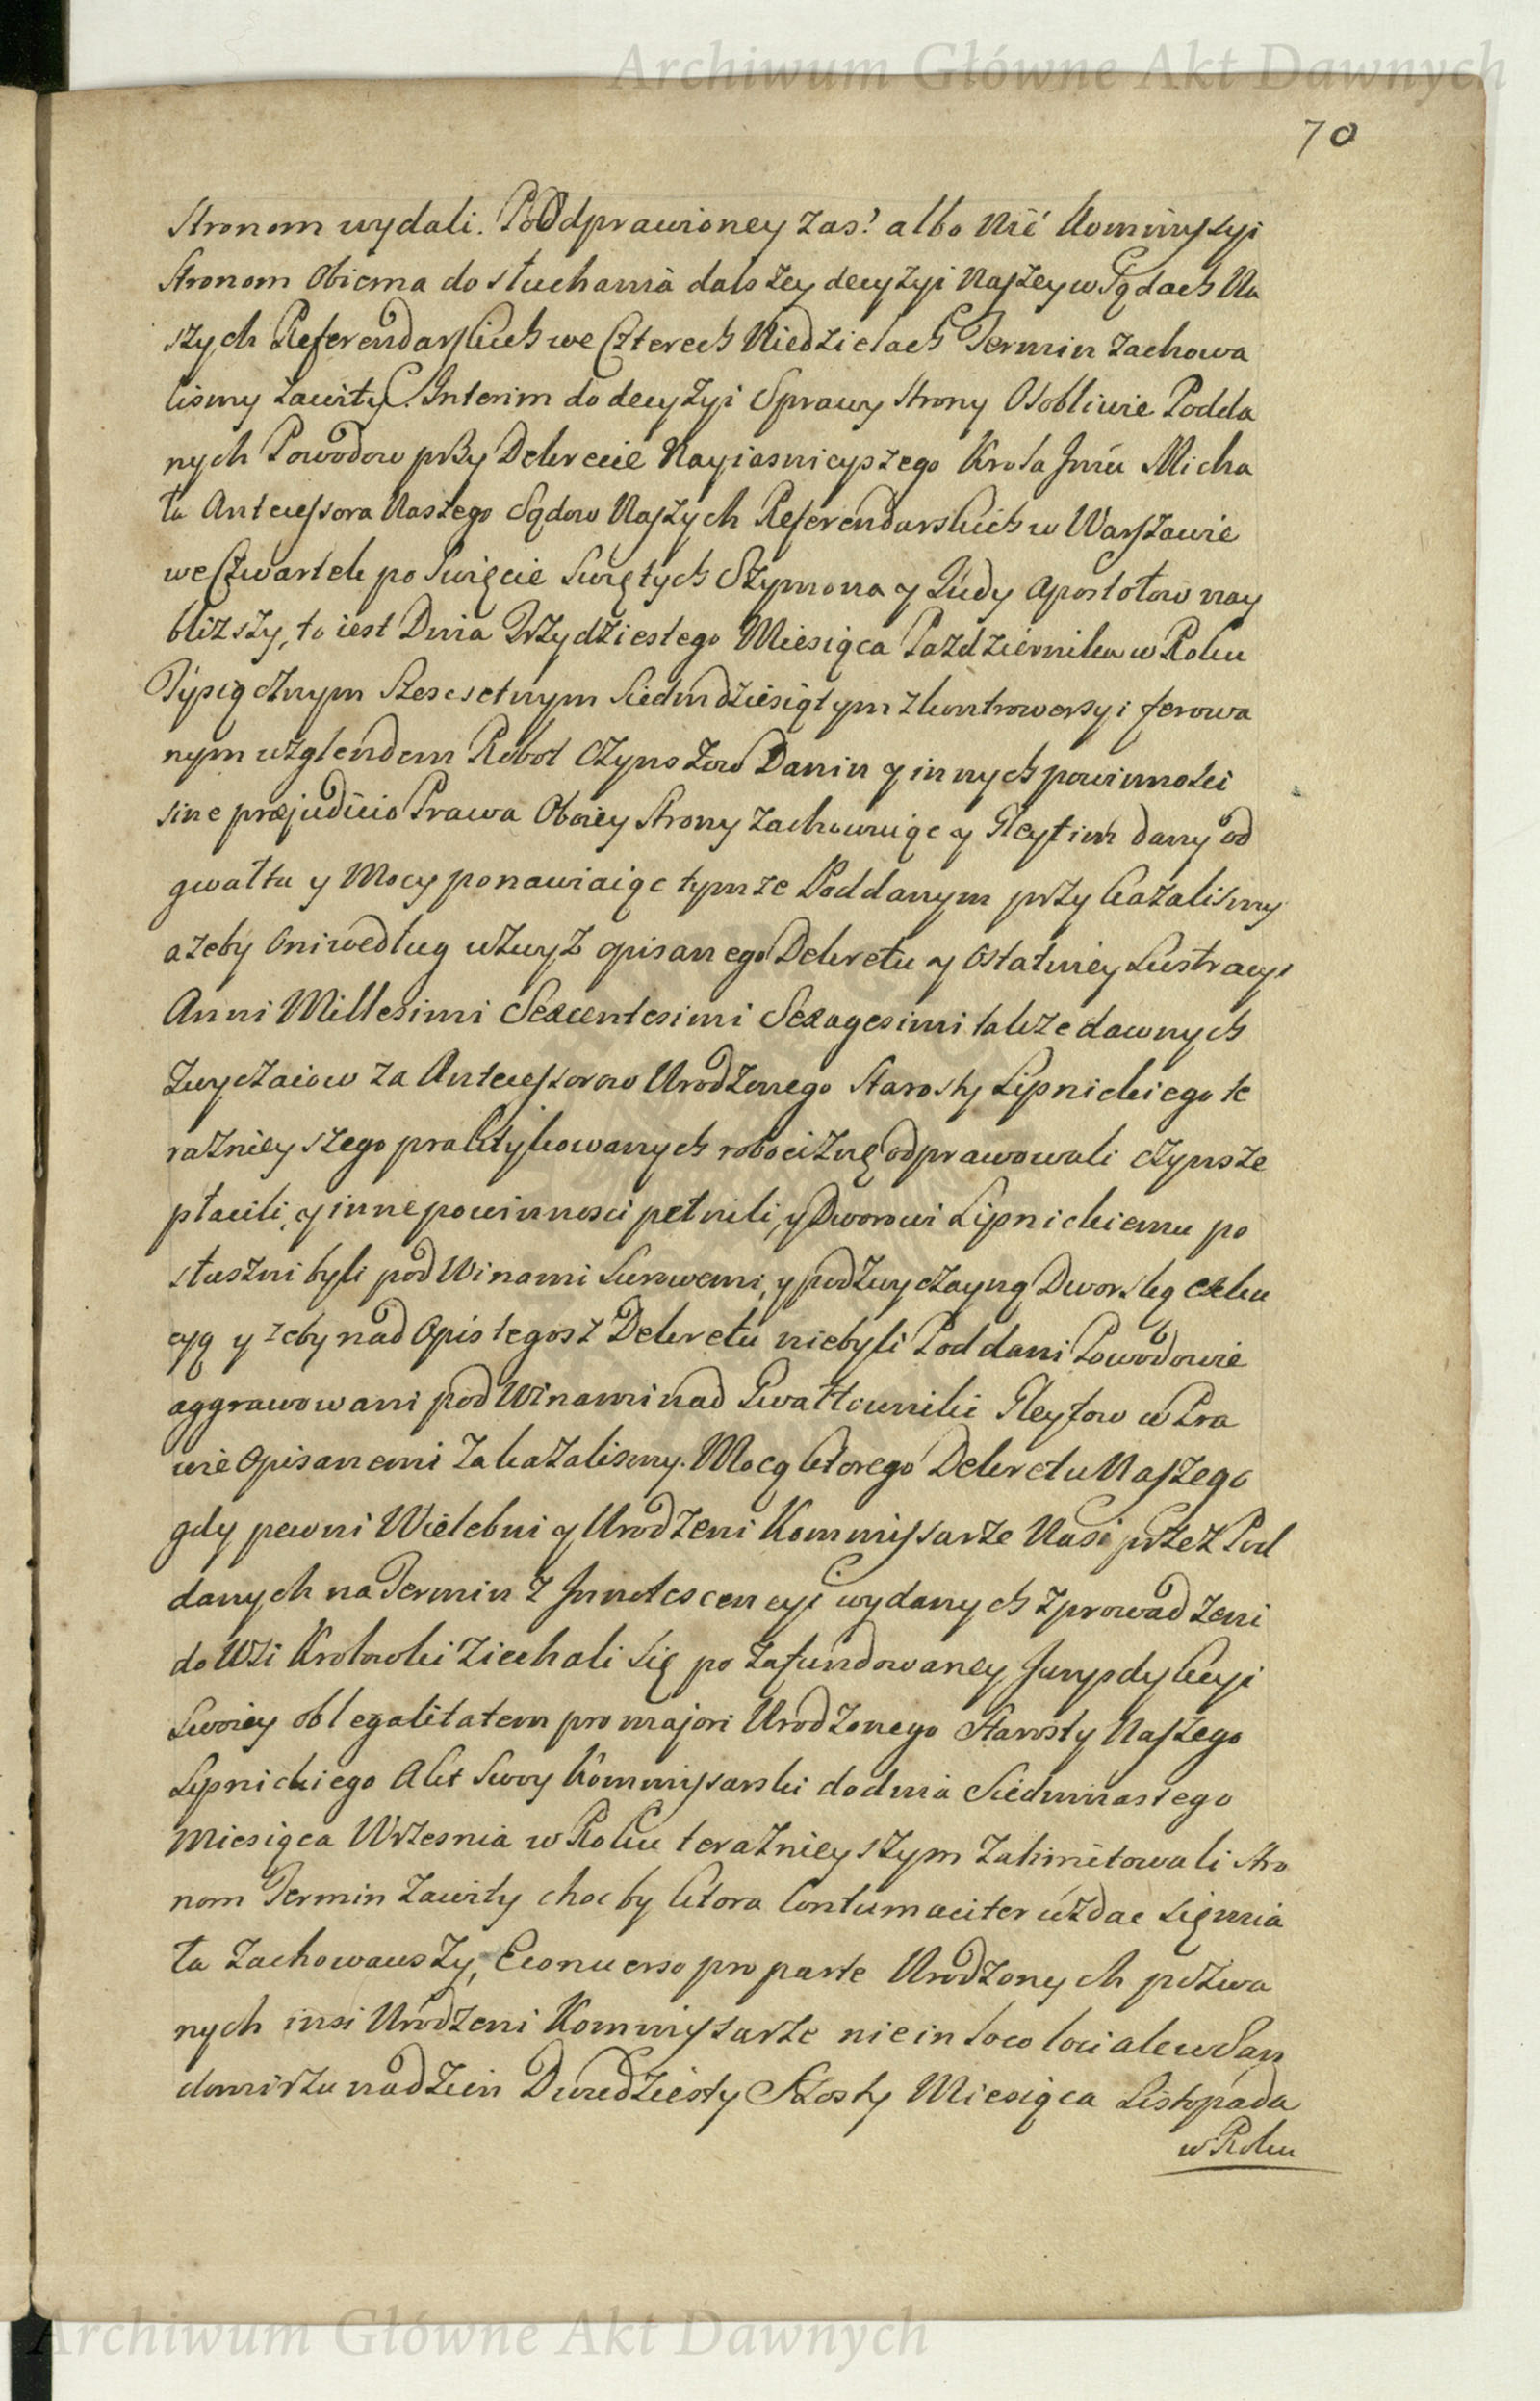 Archiwum Główne Akt Dawnych
70
Stronom wydali. Po Odprawioney zas? albo Nie Kommissyi
Stronom Obiema do słuchania dalszey decyzyi Naszey w Sądach Na
szych Referendarskich we Czterech Niedzielach Termin zachowa
lismy zawity. Interim do decyzyi Sprawy Strony Osobliwie Podda
nych Powodow przy Dekrecie Nayiasnieyszego Krola Jmci Micha
ła Antecessora Naszego Sądow Naszych Referendarskich w Warszawie
we Czwartek po Swięcie Swiętych Szymona y Judy Apostołow nay
blizszy, to iest Dnia Trzydziestego Miesiąca Pazdziernika w Roku
Tysiącznym Szescsetnym Siedmdziesiątym z kontrowersyi ferowa
nym względem Robot Czynszow Danin y innych powinnosci
sine præjudicio Prawa Oboiey Strony zachowuiąc y Gleyt im dany od
gwałtu y Mocy ponawiaiąc tymze Poddanym przykazalismy
azeby Oni według wzwyz opisanego Dekretu y Ostatniey Lustracyi
Anni Millesimi Sexcentesimi Sexagesimi takze dawnych
zwyczaiow za Antecessorow Urodzonego Starosty Lipnickiego te
raznieyszego praktykowanych robociznę odprawowali czynsze
płacili, y inne powinnosci pełnili, y Dworowi Lipnickiemu po
słuszni byli pod Winami Surowemi, y pod zwyczayną Dworską exeku
cyą y zeby nad Opis tegosz Dekretu niebyli Poddani Powodowie
aggrawowani pod Winami nad Gwałtowniki Gleytow w Pra
wie Opisanemi zakazalismy. Mocą ktorego Dekretu Naszego
gdy pewni Wielebni y Urodzeni Kommissarze Nasi przez Pod
danych na Termin z Innotescencyi wydanych zprowadzeni
do Wsi Krolowki ziechali się po zafundowaney Jurysdykcyi
Swoiey ob legalitatem pro majori Urodzonego Starosty Naszego
Lipnickiego Akt Swoy Kommissarski do dnia Siedmnastego
Miesiąca Wrzesnia w Roku teraznieyszym zalimitowali Stro
nom Termin zawity choc by ktora Contumaciter uzdac się mia
ła zachowawszy, Econverso pro parte Urodzonych pozwa
nych insi Urodzeni Kommissarze nie in Loco loci ale w San
domirzu na dzien Dwudziesty Szosty Miesiąca Listopada
w Roku
Archiwum Główne Akt Dawnych